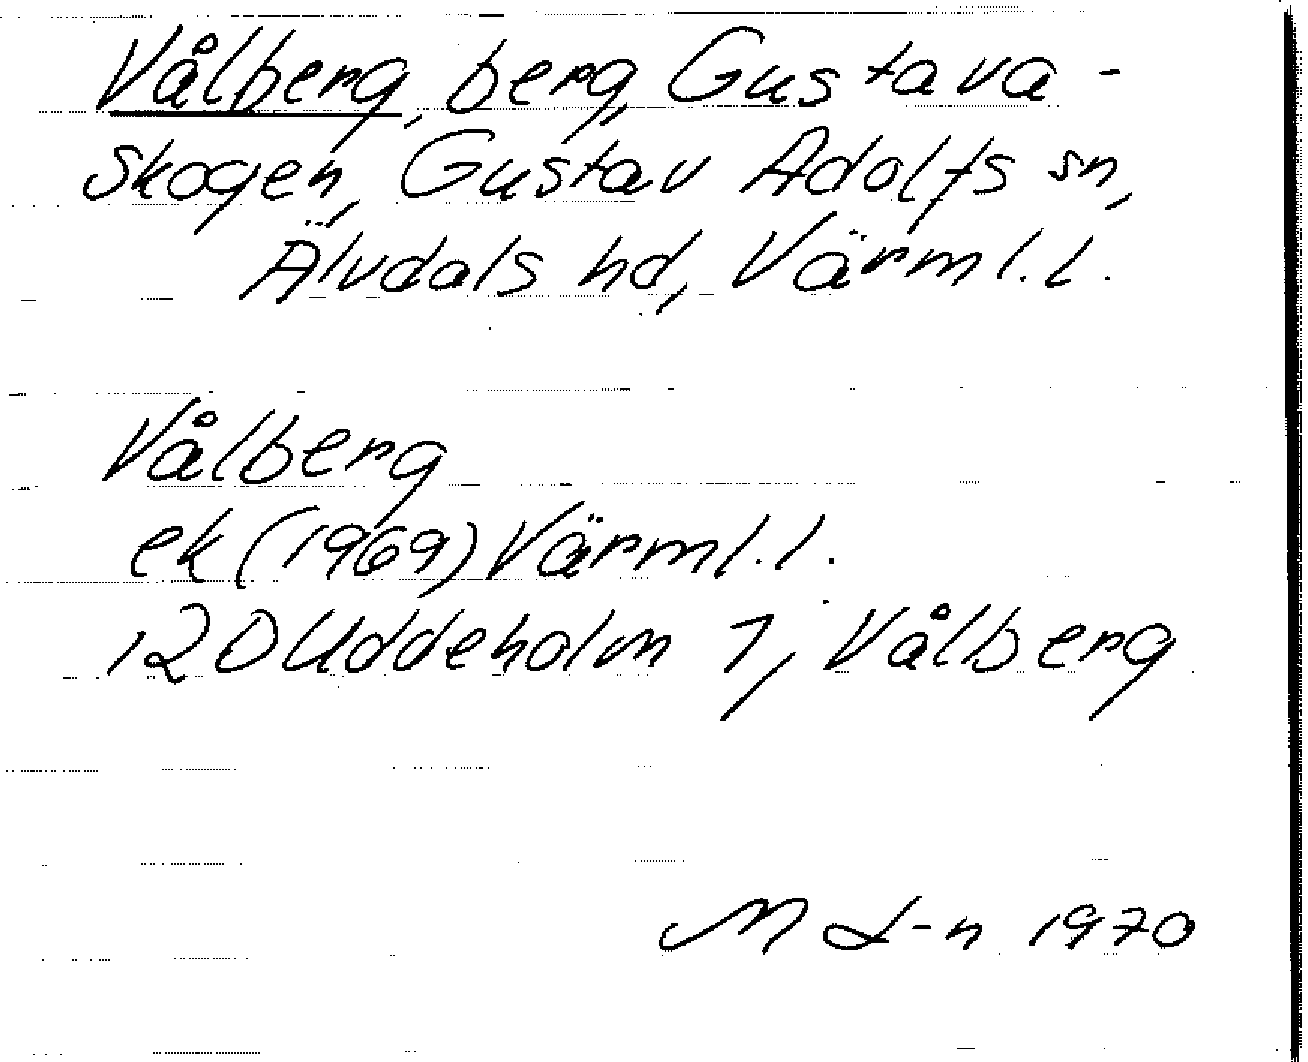 Vålberg, berg, Gustava-
skogen, Gustav Adolfs sn,
Älvdals hd, Värml. l.
Vålberg
ek (1969) Värml. l.
12D Uddeholm 7, Vålberg
M L-n 1970